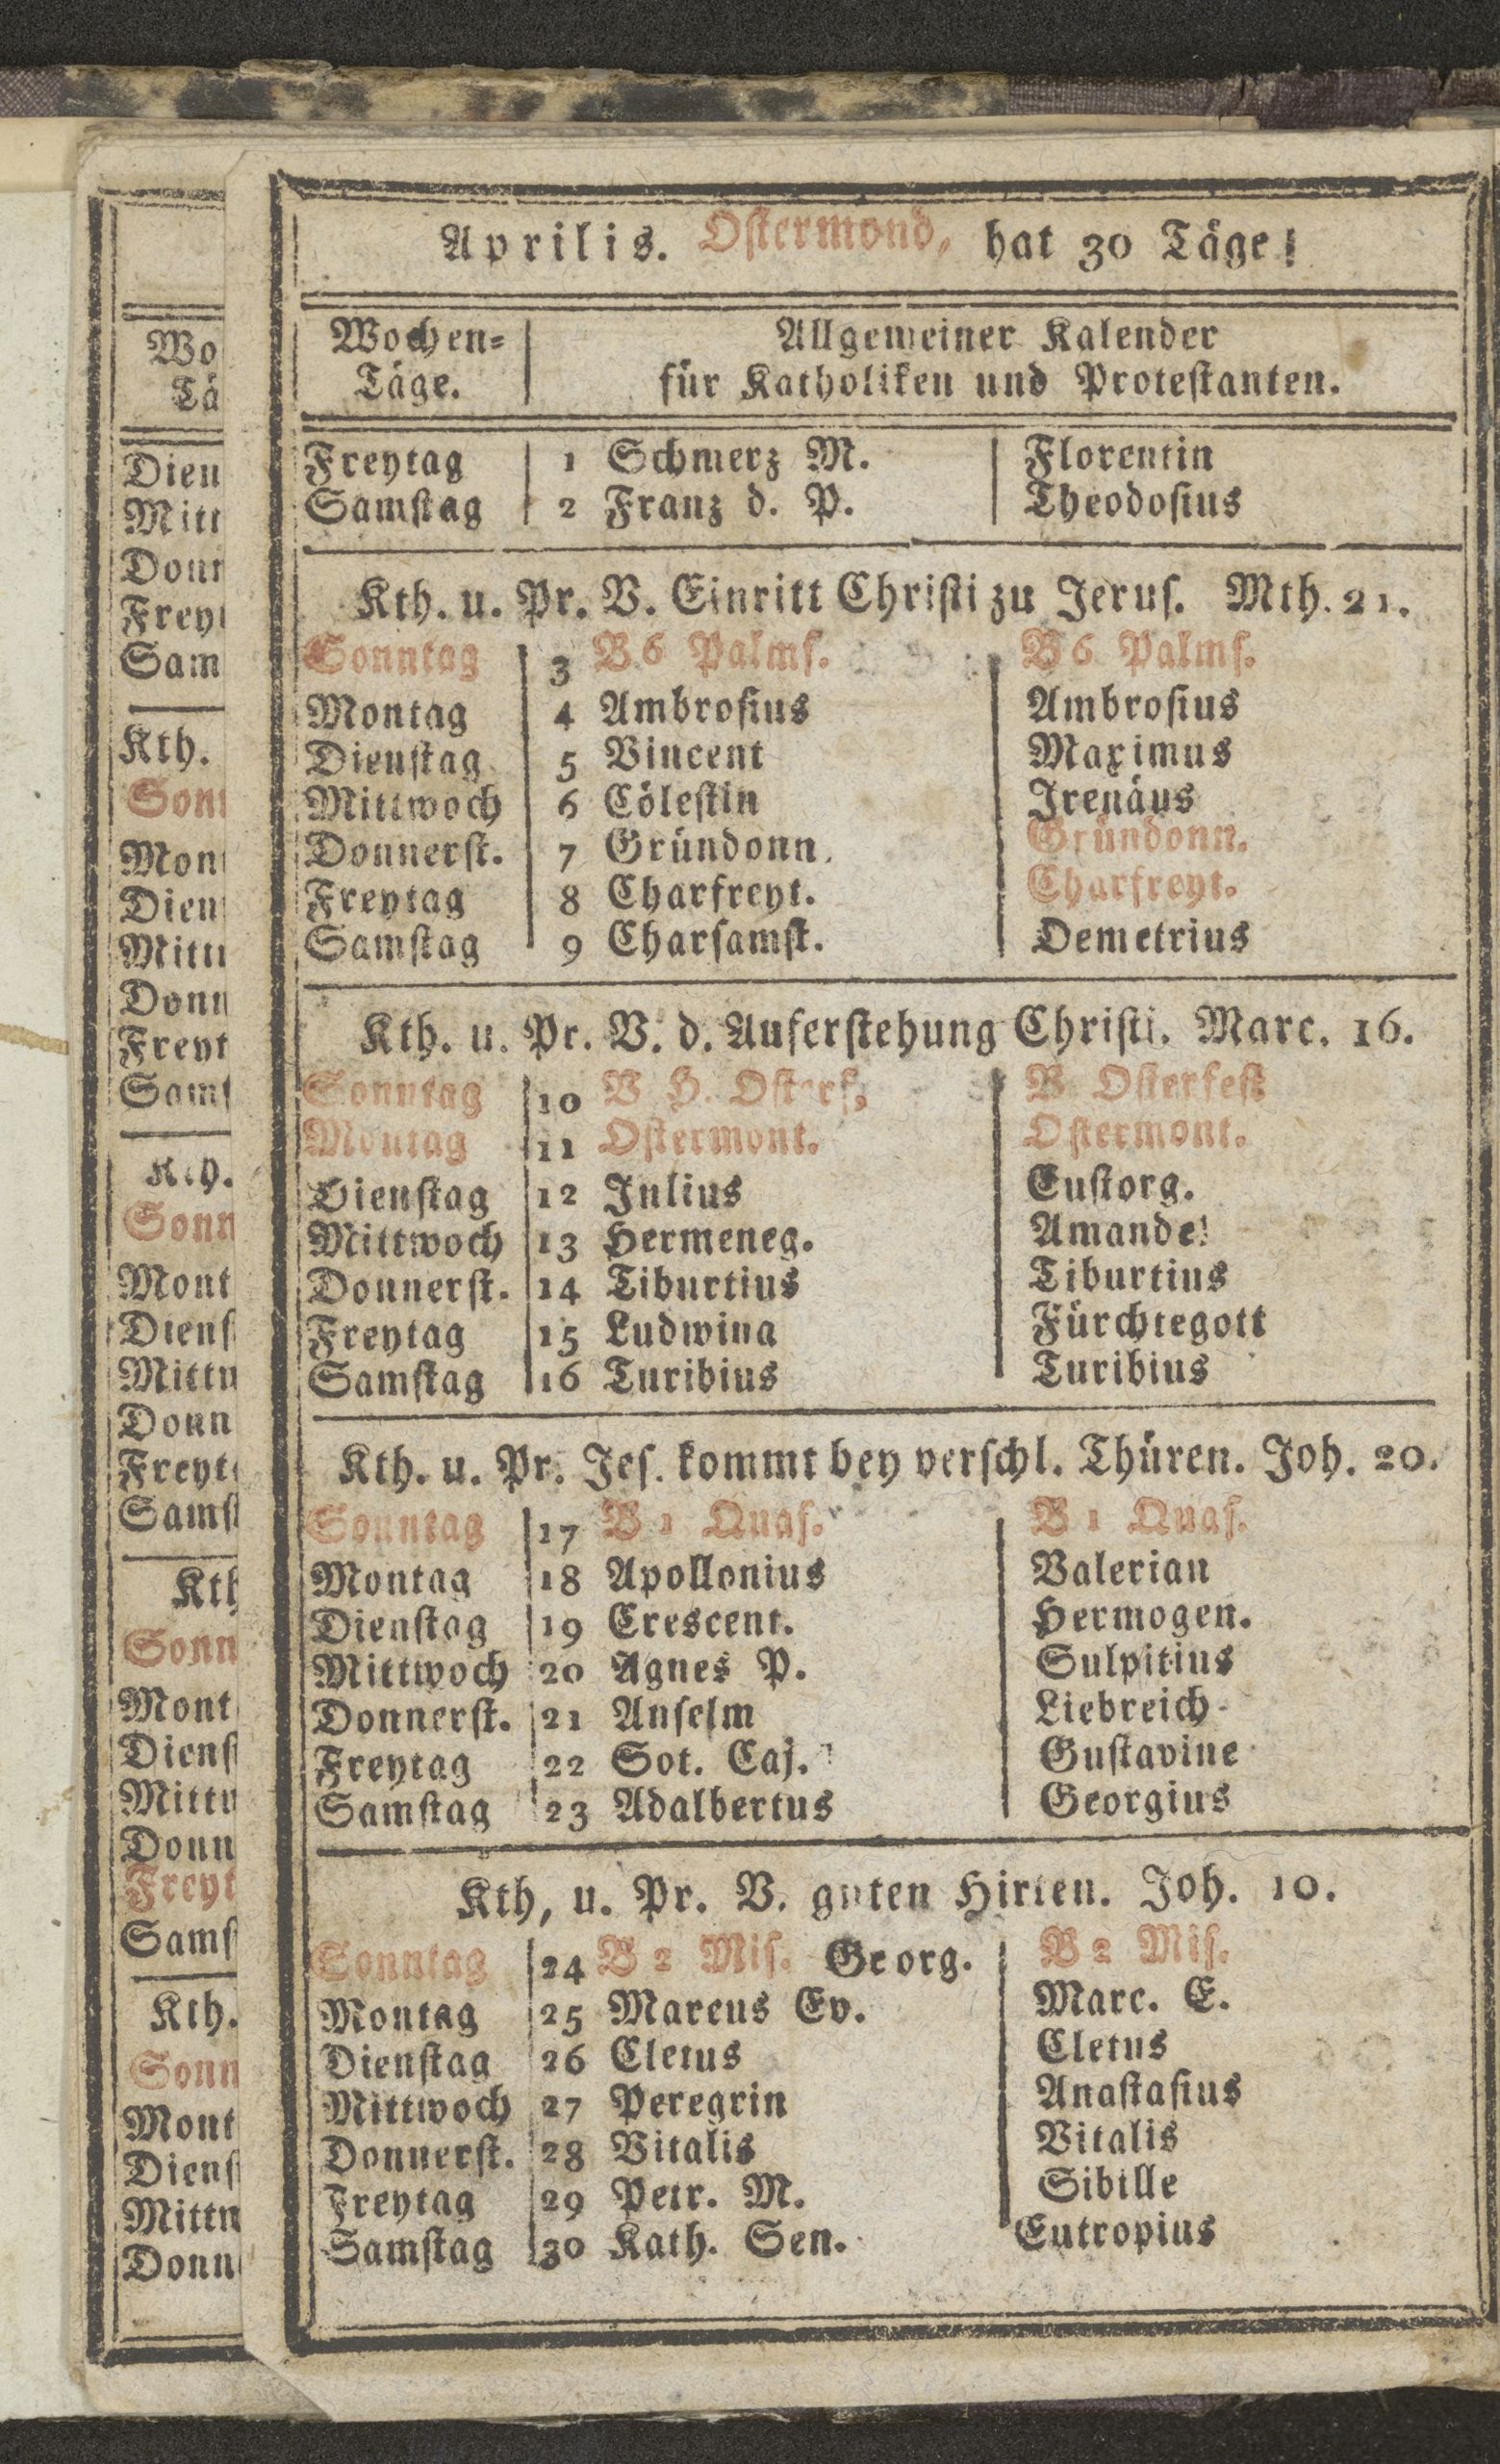 Aprilis. Ostermond, hat 30 Täge!
Wochen= Täge.
Allgemeiner Kalender
für Katholiken und Protestanten.
Freytag 1 Schmerz M. Florentin
Samstag 2 Franz d. P. Theodosius
Kth. u. Pr. V. Einritt Christi zu Jerus. Mth. 21.
Sonntag 3 B 6 Palms. B 6 Palms.
Montag 4 Ambrosius Ambrosius
Dienstag 5 Vincent Maximus
Mittwoch 6 Cölestin Irenäus
Donnerst. 7 Gründonn. Gründonn.
Freytag 8 Charfreyt. Charfreyt.
Samstag 9 Charsamst. Demetrius
Kth. u. Pr. V. d. Auferstehung Christi. Marc. 16.
Sonntag 10 B H. Osterf. B Osterfest
Montag 11 Ostermont. Ostermont.
Dienstag 12 Julius Eustorg.
Mittwoch 13 Hermeneg. Amande!
Donnerst. 14 Tiburtius Tiburtius
Freytag 15 Ludwina Fürchtegott
Samstag 16 Turibius Turibius
Kth. u. Pr. Jes. kommt bey verschl. Thüren. Joh. 20.
Sonntag 17 B 1 Quas. B 1 Quas.
Montag 18 Apollonius Valerian
Dienstag 19 Crescent. Hermogen.
Mittwoch 20 Agnes P. Sulpitius
Donnerst. 21 Anselm Liebreich
Freytag 22 Sot. Caj. Gustavine
Samstag 23 Adalbertus Georgius
Kth, u. Pr. V. guten Hirten. Joh. 10.
Sonntag 24 B 2 Mis. Georg. B 2 Mis.
Montag 25 Marcus Ev. Marc. E.
Dienstag 26 Cletus Cletus
Mittwoch 27 Peregrin Anastasius
Donnerst. 28 Vitalis Vitalis
Freytag 29 Petr. M. Sibille
Samstag 30 Kath. Sen. Eutropius